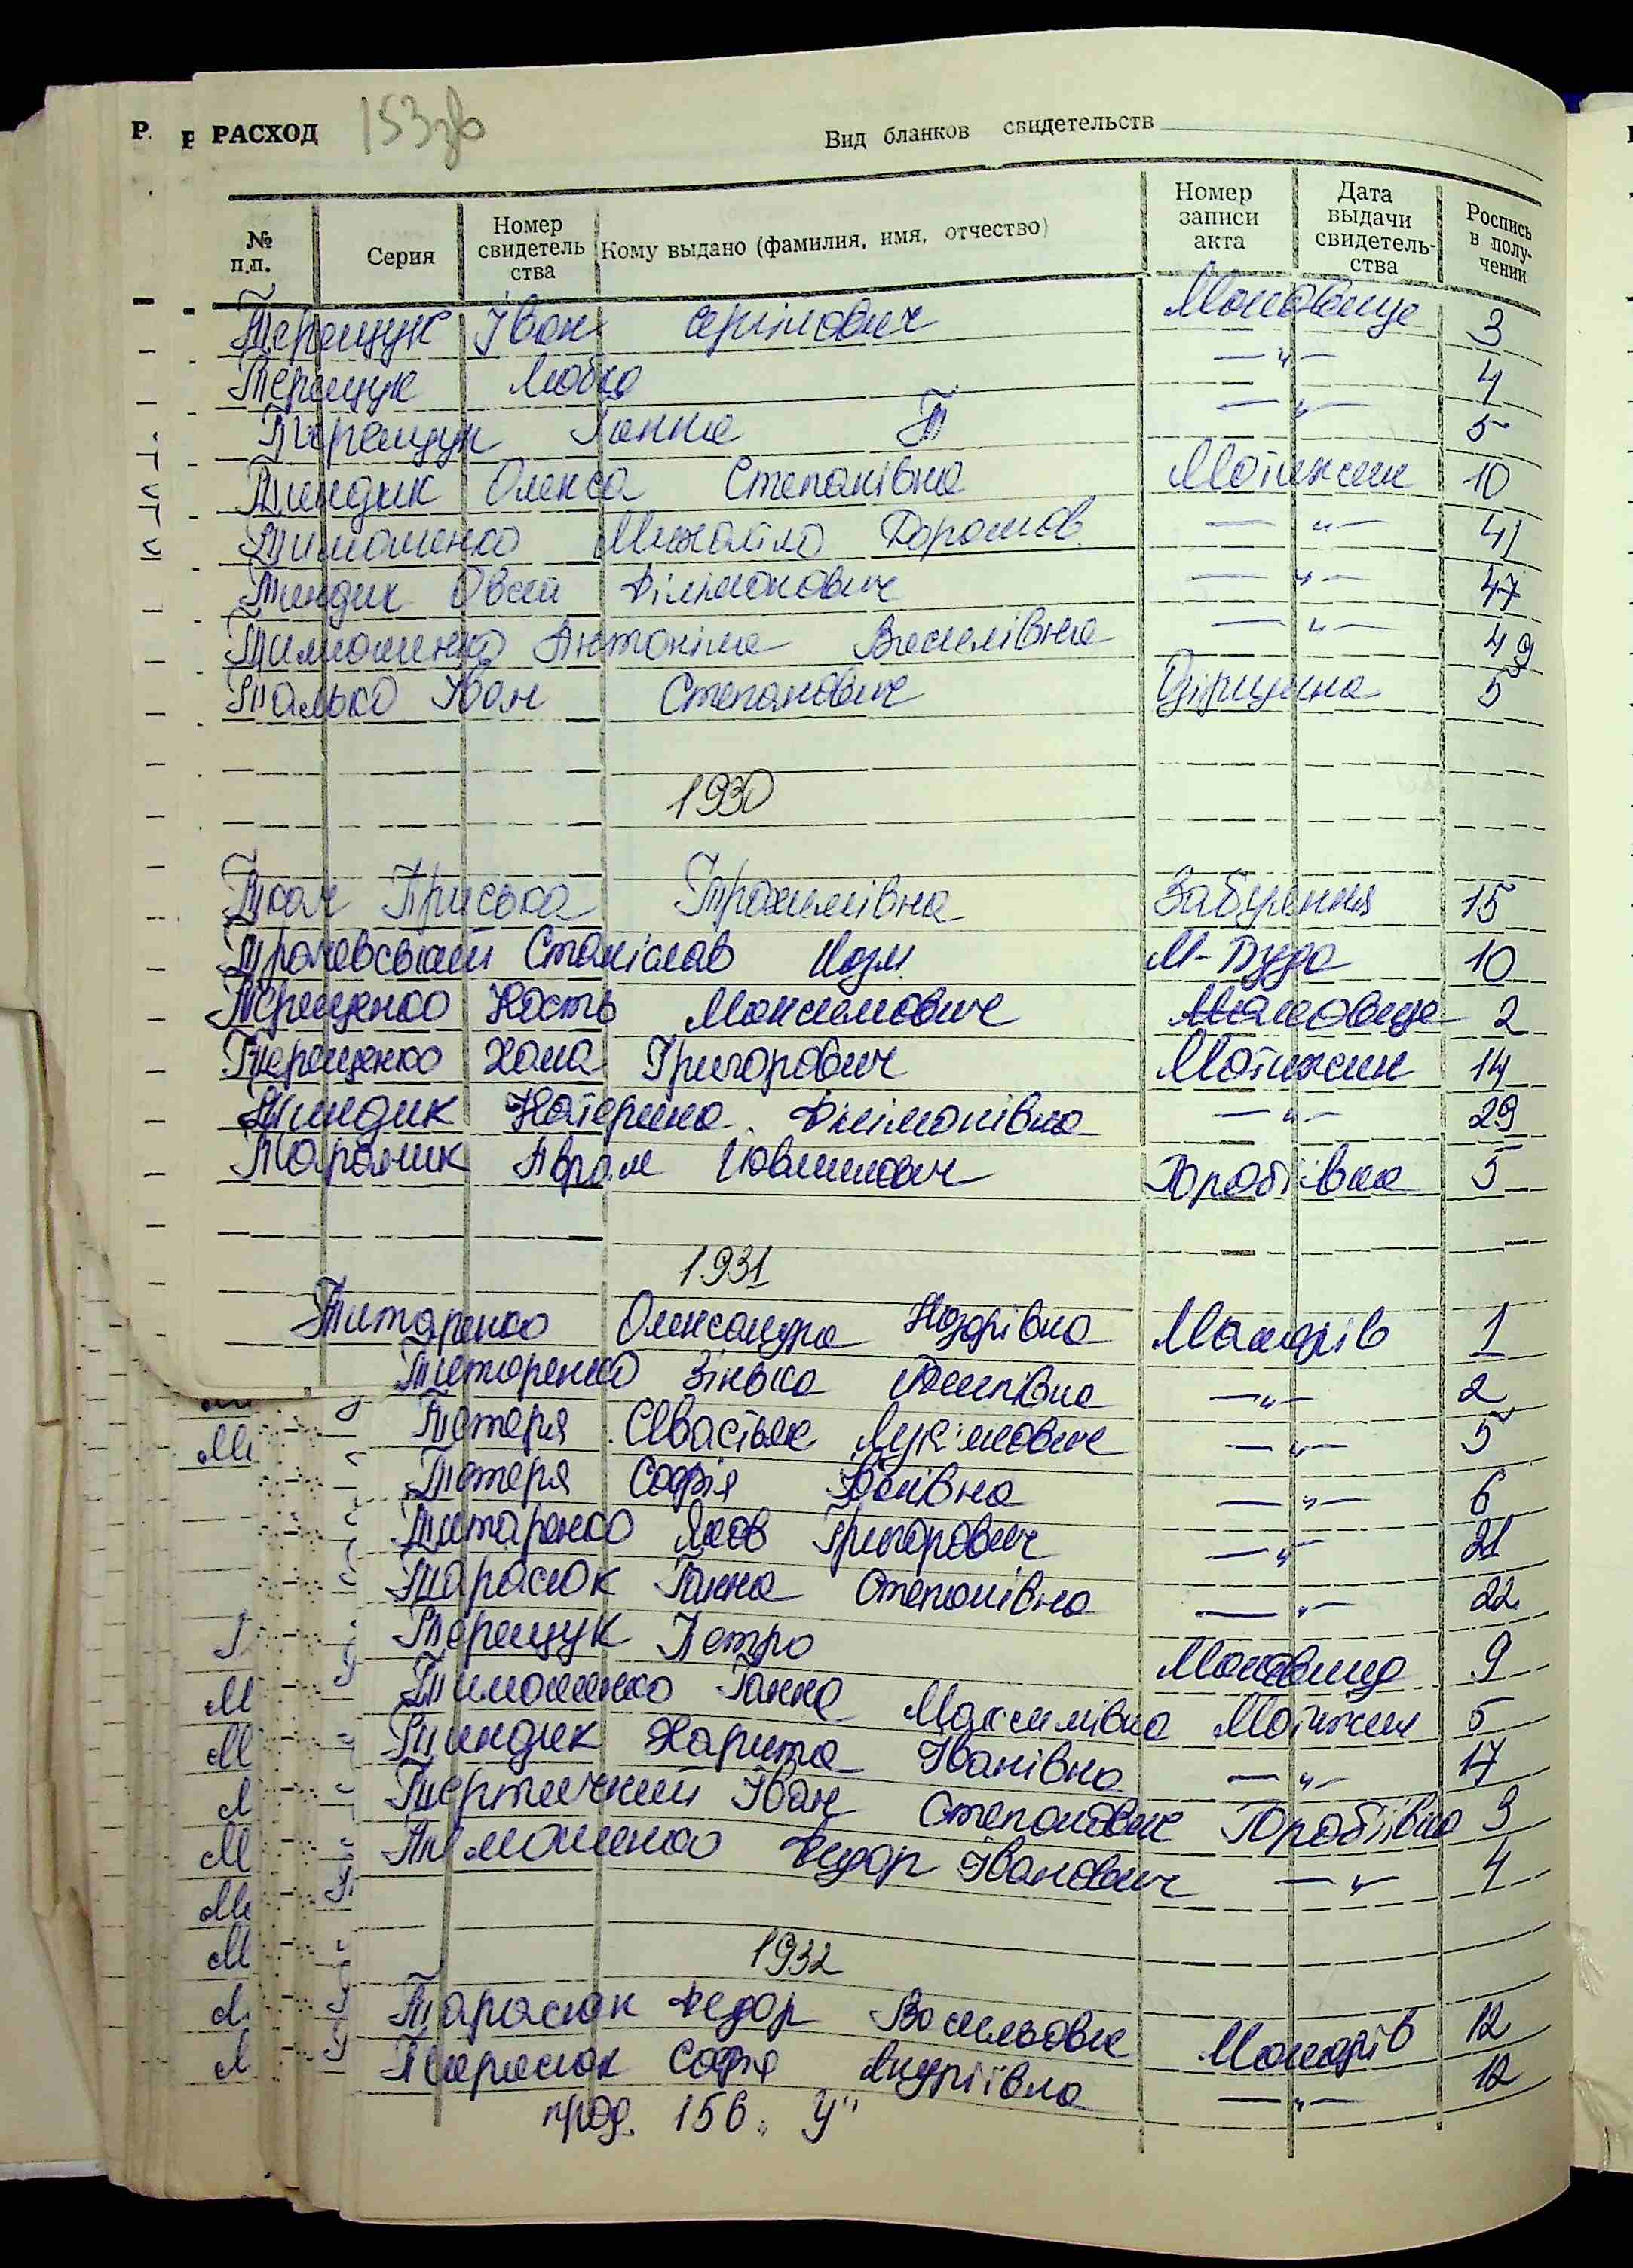 РАСХОД 153зв
Вид бланков свидетельств
№ п.п. Серия Номер свидетельства Кому выдано (фамилия, имя, отчество) Номер записи акта Дата выдачи свидетельства Роспись в получении
Терещук Іван Маковище 3
Терещук Любка — " — 4
Терещук Ганна Т — " — 5
Тиндик Олекса Степанівна Мотижин 10
Тимошенко Михайло Дорошов — " — 41
Тиндик Овсій Філімонович — " — 47
Тимошенко Антоніна Василівна — " — 49
Талько Іван Степанович 5
1930
Ткач Приська Трохимівна Забуяння 15
Станіслав Йозм М-Буда 10
Терещенко Кость Максимович Маковище 2
Терещенко Хома Григорович Мотижин 14
Тиндик Катерина Філімонівна — " — 29
Аврам Юхимович 5
1931
Титаренко Олександра Макарів 1
Титаренко Зінька — " — 2
Тетеря Севастьян — " — 5
Тетеря Софія — " — 6
Титаренко Яков Григорович — " — 21
Тарасюк Ганна Степанівна — " — 22
Терещук Петро Маковище 9
Тимошенко Ганна Максимівна Мотижин 5
Тиндик Харита Іванівна — " — 17
Іван Степанович Юробіївка 3
Тимошенко Федор Іванович — " — 4
1932
Тарасюк Федор Васильович Макарів 12
Тарасюк Софія Андріївна — " — 12
прод. 156 „У"